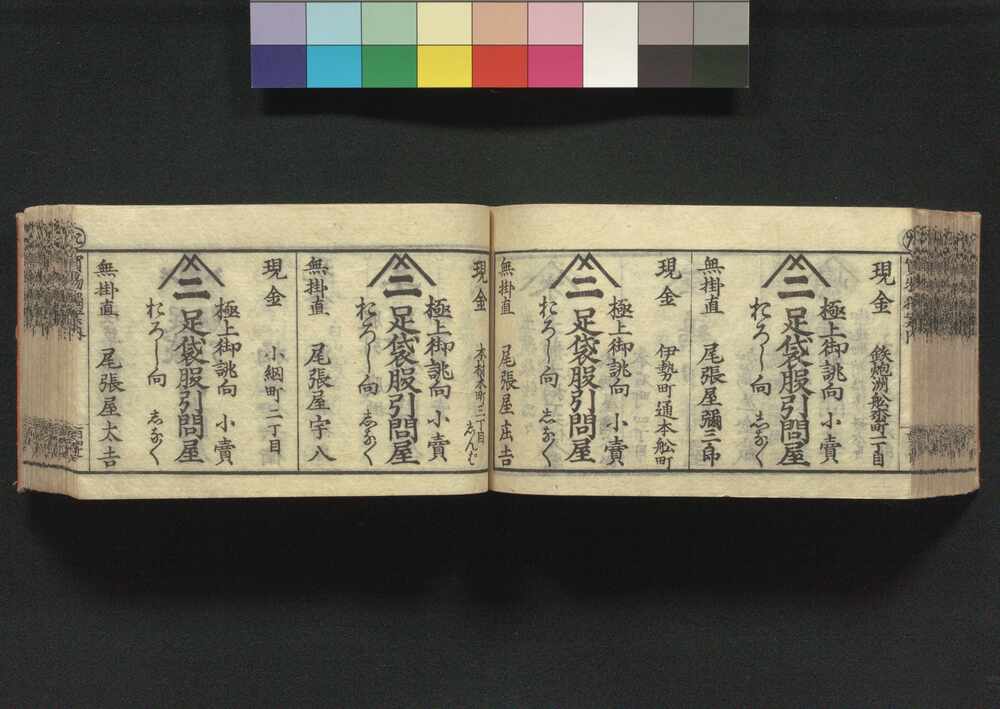 現金 鉄炮洲舩枩町一丁目
極上御誂向 小賣
二 足袋股引問屋
おろし向 しなしなく
無掛直 尾張屋彌三郎
現金 伊勢町通本舩町
極上御誂向 小賣
二 足袋股引問屋
おろし向
無掛直 尾張屋庄吉
現金 本材木町三丁目
極上御誂向 小賣
二 足袋股引問屋
おろし向
無掛直 尾張屋宇八
現金 小網町二丁目
極上御誂向 小賣
二 足袋股引問屋
おろし向
無掛直 尾張屋太吉